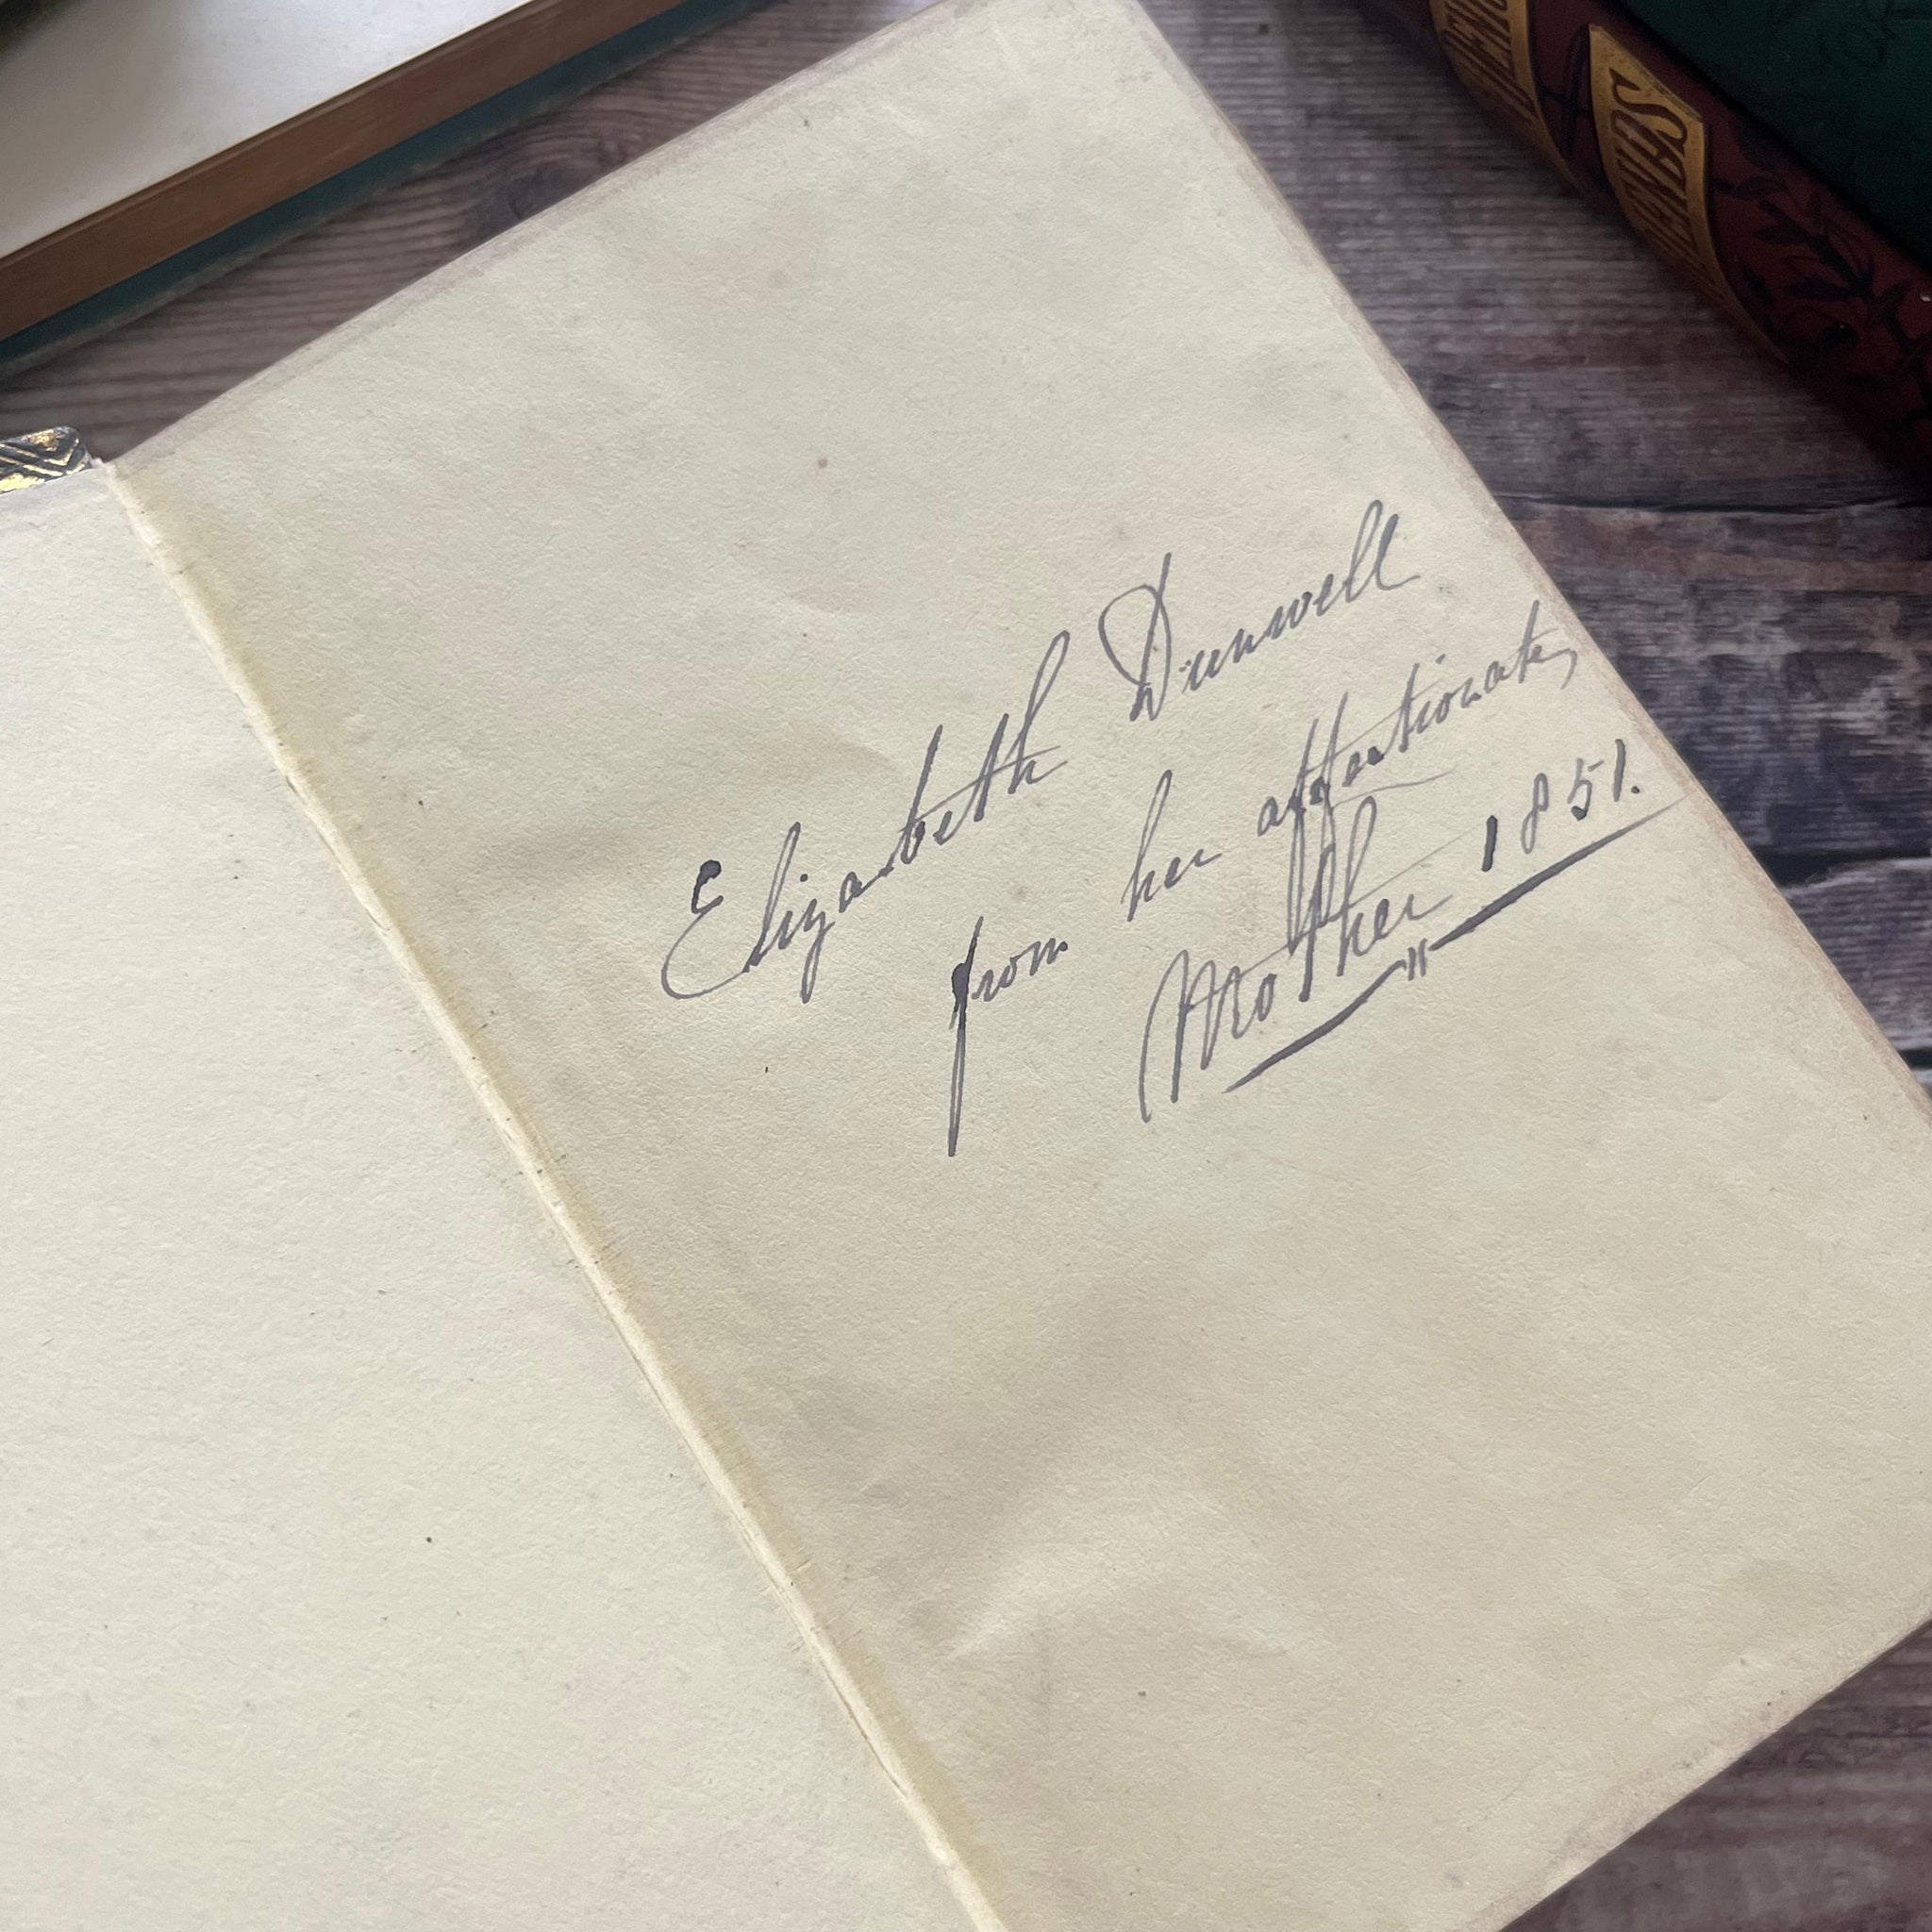 Elizabeth Dunwell
from her affectionate
Mother 1851.
LEGENDS